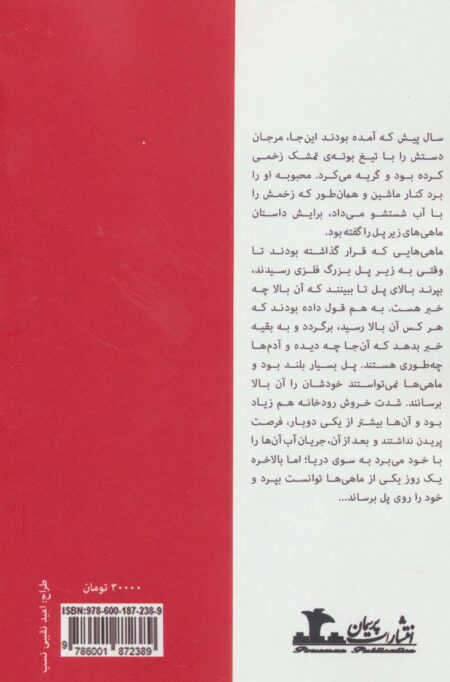 سال پیش که آمده بودند این‌جا، مرجان
دستش را با تیغ بوته‌ی تمشک زخمی
کرده بود و گریه می‌کرد. محبوبه او را
برد کنار ماشین و همان‌طور که زخمش را
با آب شستشو می‌داد، برایش داستان
ماهی‌های زیر پل را گفته بود.
ماهی‌هایی که قرار گذاشته بودند تا
وقتی به زیر پل بزرگ فلزی رسیدند،
بپرند بالای پل تا ببینند که آن بالا چه
خبر هست. به هم قول داده بودند که
هر کس آن بالا رسید، برگردد و به بقیه
خبر بدهد که آن‌جا چه دیده و آدم‌ها
چه‌طوری هستند. پل بسیار بلند بود و
ماهی‌ها نمی‌توانستند خودشان را آن بالا
برسانند. شدت خروش رودخانه هم زیاد
بود و آن‌ها بیشتر از یکی دوبار، فرصت
پریدن نداشتند و بعد از آن، جریان آب آن‌ها را
با خود می‌برد به سوی دریا؛ اما بالاخره
یک روز یکی از ماهی‌ها توانست بپرد و
خود را روی پل برساند...
۳۰۰۰۰ تومان
ISBN:978-600-187-238-9
9 786001 872389
طراح: امید نقیبی نسب
انتشارات پریمان
Publication